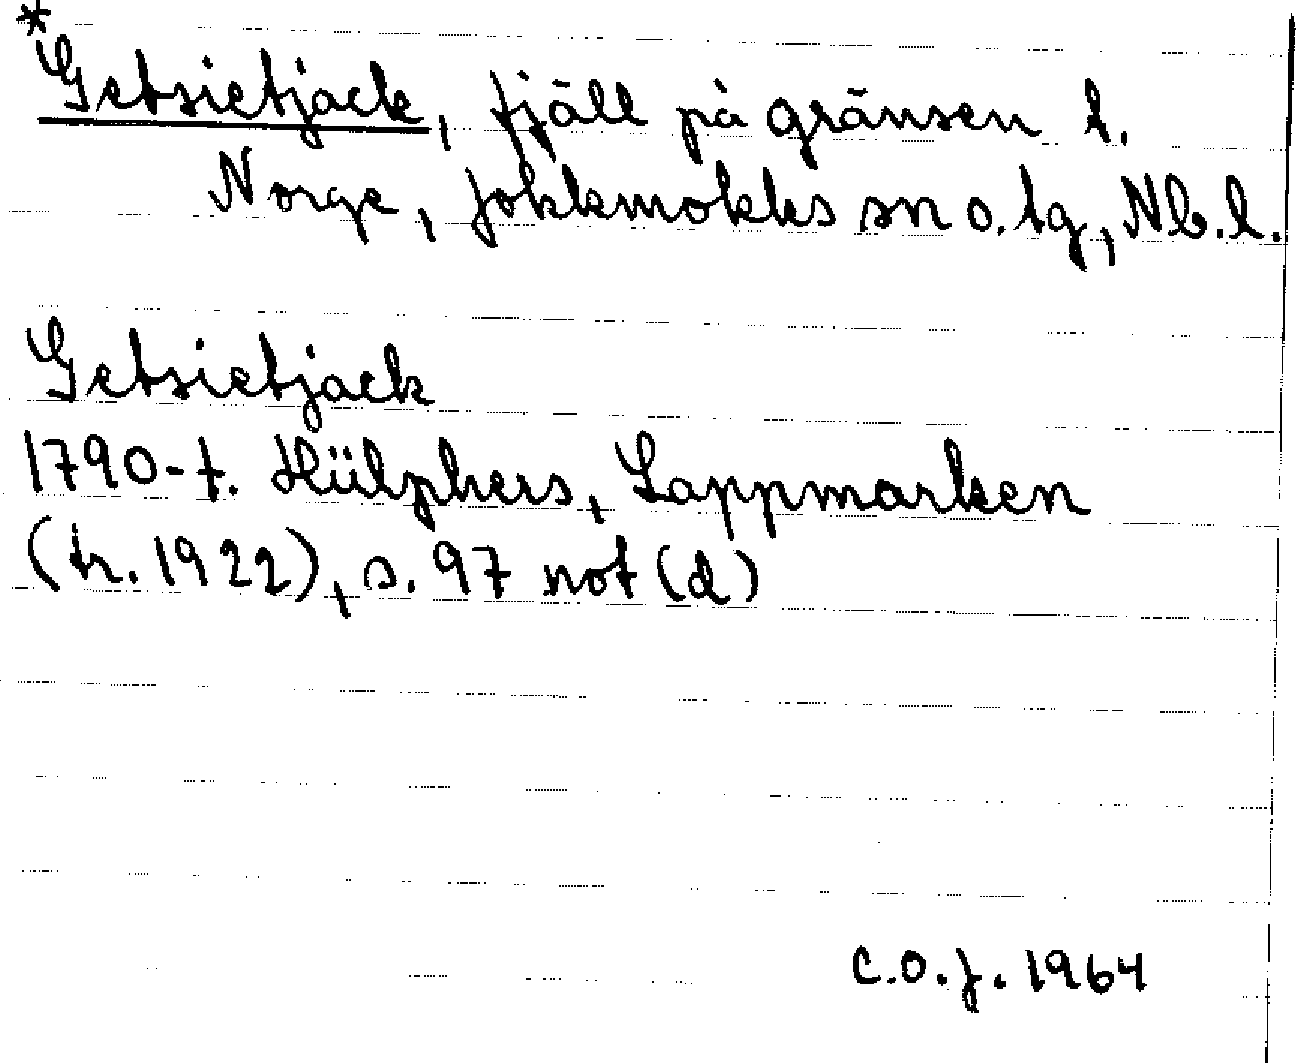 *Getsietjack, fjäll på gränsen t.
Norge, Jokkmokks sn o. tg, Nb. l.
Getsietjack
1790-t. Hülphers, Lappmarken
(tr. 1922), s. 97 not (d)
C.O.J. 1964